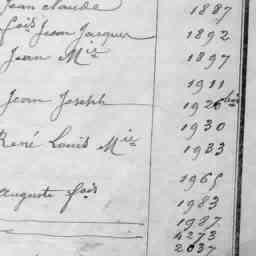 Jean Claude 1887
fois Jean Jacques 1892
Jean Mie 1897
1911
Jean Joseph 1926 bis
1930
René Louis Mie 1933
1965
Auguste fois 1983
1987
2273
2037